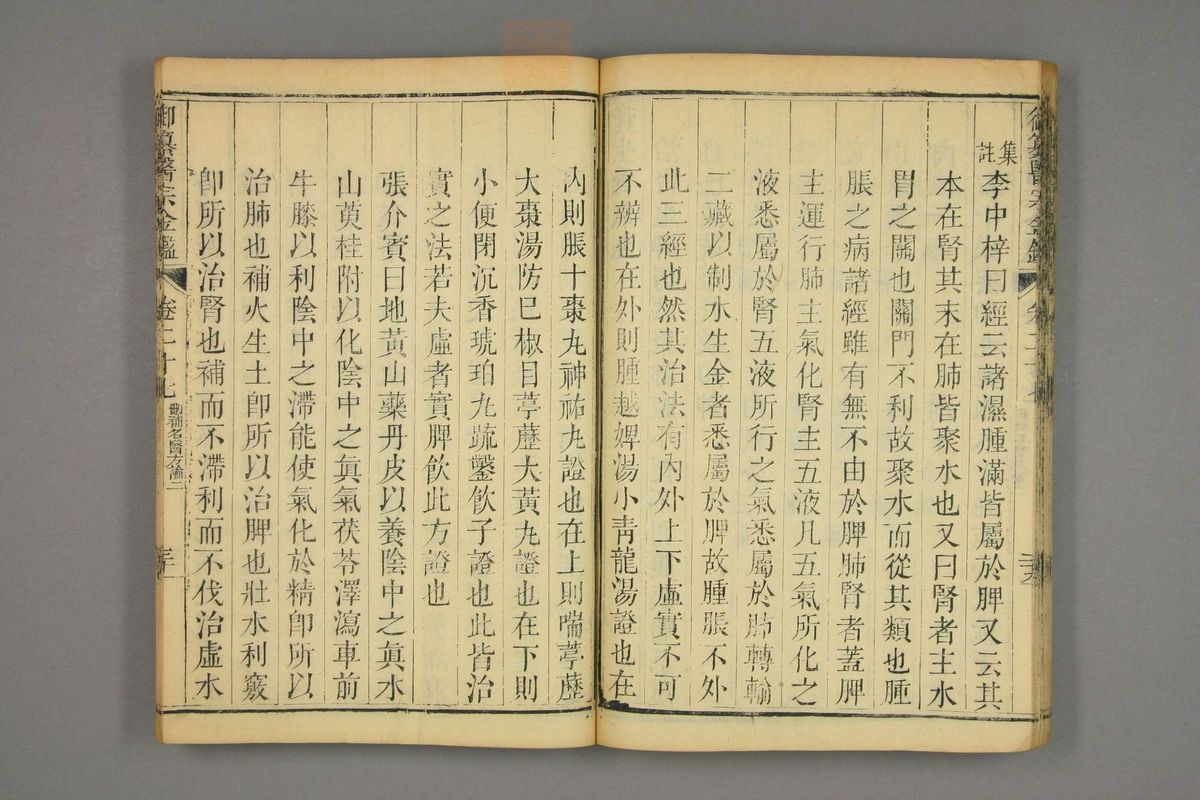 御纂醫宗金鑑
集註
李中梓曰經云諸濕腫滿皆屬於脾又云其
本在腎其末在肺皆聚水也又曰腎者主水
胃之關也關門不利故聚水而從其類也腫
脹之病諸經雖有無不由於脾肺腎者蓋脾
主運行肺主氣化腎主五液凡五氣所化之
液悉屬於腎五液所行之氣悉屬於肺轉輸
二藏以制水生金者悉屬於脾故腫脹不外
此三經也然其治法有內外上下虛實不可
不辨也在外則腫越婢湯小青龍湯證也在
內則脹十棗丸神祐丸證也在上則喘葶藶
大棗湯防巳椒目葶藶大黃丸證也在下則
小便閉沉香琥珀丸疏鑿飲子證也此皆治
實之法若夫虛者實脾飲此方證也
張介賓曰地黃山藥丹皮以養陰中之眞水
山萸桂附以化陰中之眞氣茯苓澤瀉車前
牛膝以利陰中之滯能使氣化於精卽所以
治肺也補火生土卽所以治脾也壯水利竅
卽所以治腎也補而不滯利而不伐治虛水
御纂醫宗金鑑
卷二十七
刪補名醫方論二